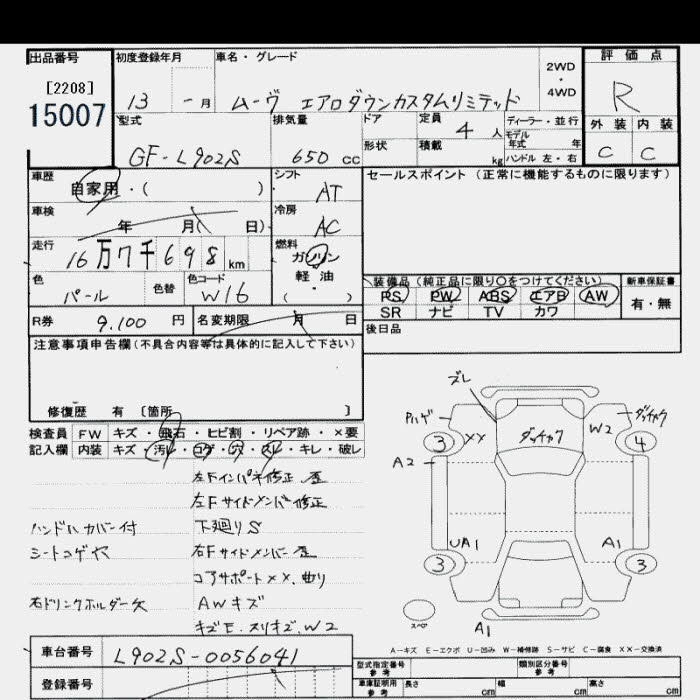 出品番号 初度登録年月 車名・グレード 2WD・4WD 評価点
[2208] 15007 13 - 月 ムーヴ エアロダウンカスタムリミテッド R
型式 排気量 ドア 定員 4 人 ディーラー・並行 外装 内装
GF-L902S 650 cc 形状 積載 kg モデル年式 年 ハンドル 左・右 C C
車歴 自家用・( ) シフト AT セールスポイント (正常に機能するものに限ります)
車検 年 月( 日) 冷房 AC
走行 16万7千698km 燃料 ガソリン 軽油 ( )
色 パール 色替 色コード W16 装備品 (純正品に限り○をつけてください) 新車保証書
PS PW ABS エアB AW 有・無
SR ナビ TV カワ
R券 9.100 円 名変期限 月 日 後日品
注意事項申告欄(不具合内容等は具体的に記入して下さい)
修復歴 有 [箇所 ]
検査員 FW キズ・飛石・ヒビ割・リペア跡・×要
記入欄 内装 キズ・汚レ・コゲ・穴・スレ・キレ・破レ
左Fインパネ修正 歪
左Fサイドメンバー修正
ハンドルカバー付 下廻りS
シートコゲヤ 右Fサイドメンバー歪
コアサポート××. 曲り
右ドリンクホルダー欠 AWキズ
キズE. スリキズ. W2
ズレ
Pハゲ ×× ダッチャク W2 ダッチャク
3 4
A2
UA1 A1
3 3
スペア A1
A-キズ E-エクボ U-凹み W-補修跡 S-サビ C-腐食 ××-交換済
車台番号 L902S-0056041 型式指定番号 参考 類別区分番号 参考
登録番号 車庫証明用 参考 長さ cm 幅 cm 高さ cm